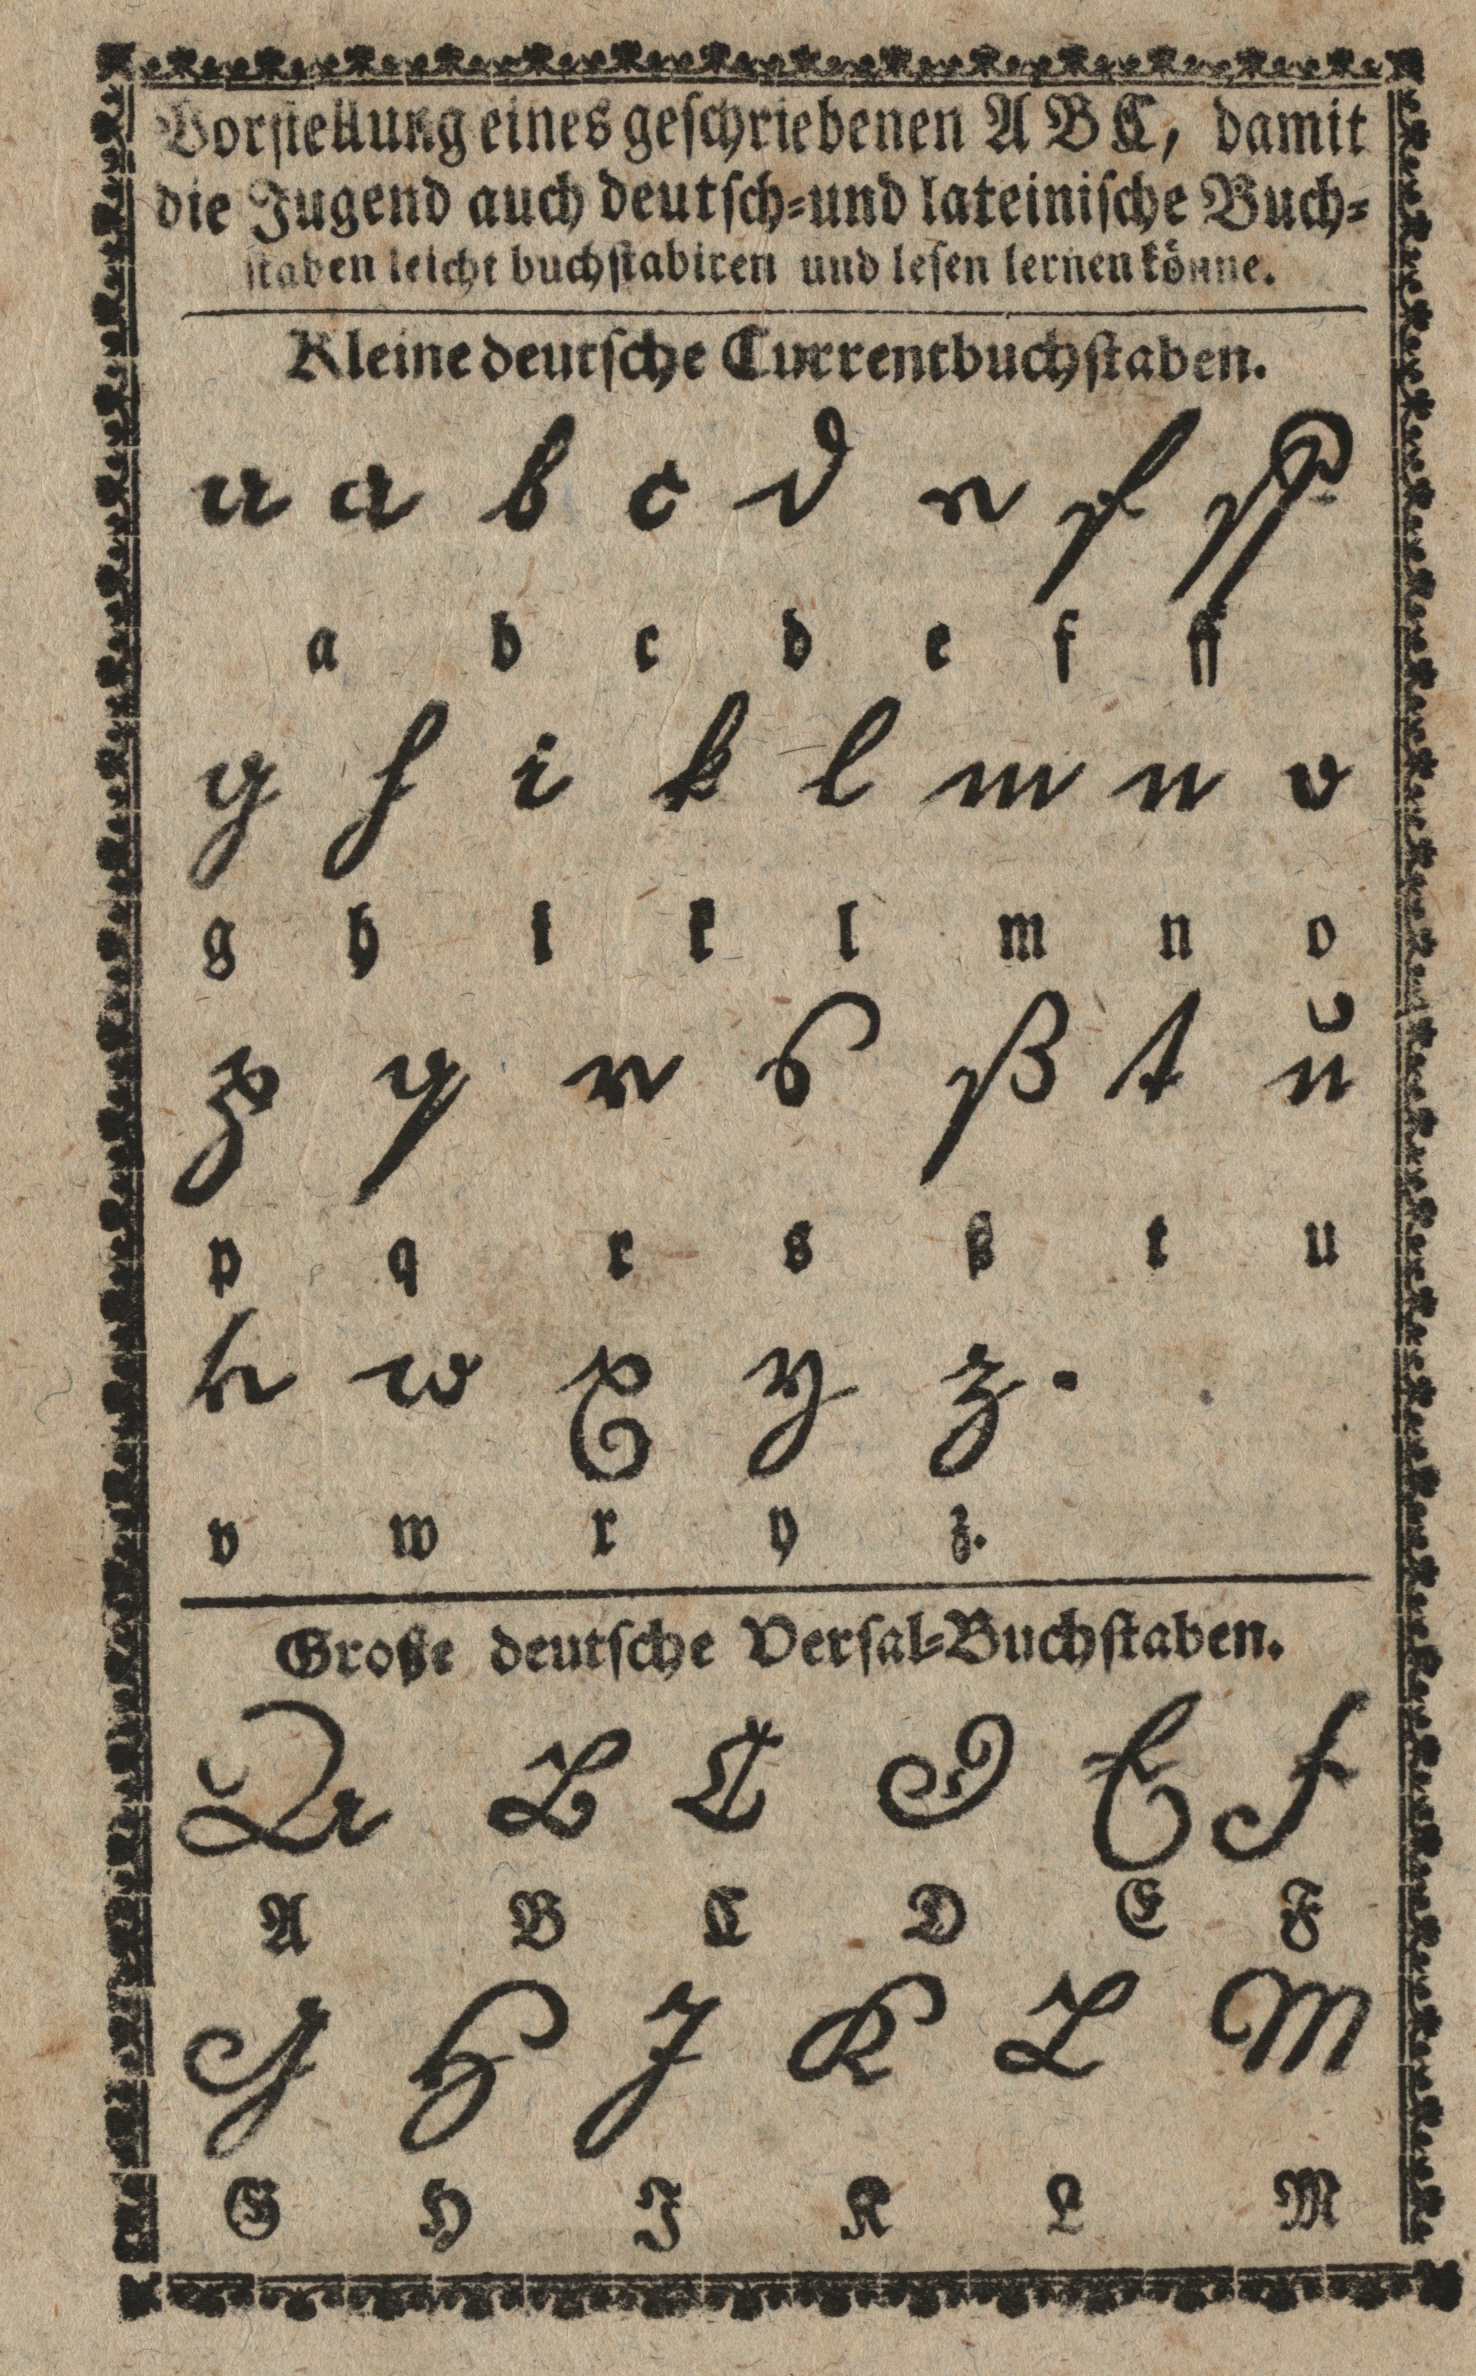 Vorſtellung eines geſchriebenen A B C, damit
die Jugend auch deutſch-und lateiniſche Buch-
ſtaben leicht buchſtabiren und leſen lernen könne.
Kleine deutſche Currentbuchſtaben.
a a b c d e f ff
a b c d e f ff
g h i k l m n o
g h i k l m n o
p q r s ß t u
p q r s ß t u
v w x y z.
v w x y z.
Große deutſche Verſal-Buchſtaben.
A B C D E F
A B C D E F
G H J K L M
G H J K L M